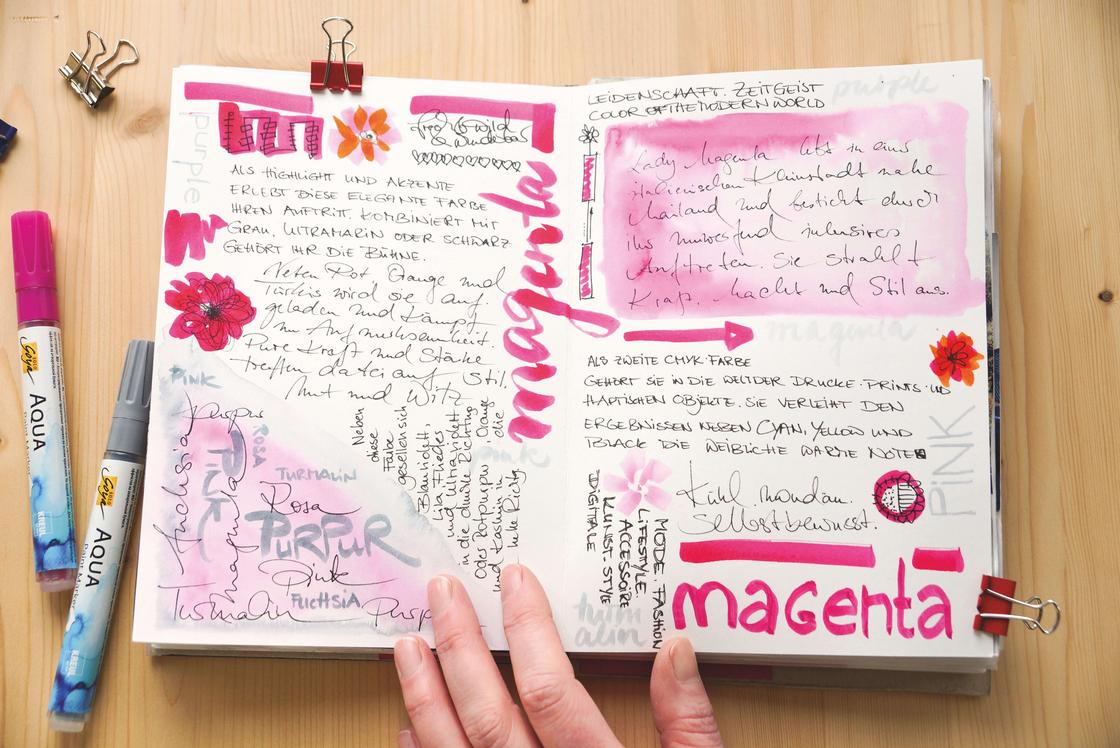 purple
frei & wild
& wunderbar
ALS HIGHLIGHT UND AKZENTE
ERLEBT DIESE ELEGANTE FARBE
IHREN AUFTRITT. KOMBINIERT MIT
GRAU, ULTRAMARIN ODER SCHWARZ
GEHÖRT IHR DIE BÜHNE.
Neben Rot, Orange und
Türkis wird sie auf-
geladen und kämpft
um Aufmerksamkeit.
Pure Kraft und Stärke
treffen dabei auf Stil,
Mut und Witz
magenta
PINK
Purpur
Fuchsia
ROSA
PINK
magenta
TURMALIN
Rosa
PURPUR
Pink
FUCHSIA
Turmalin
Purp
Neben
diese
Farbe
gesellen sich
Blauviolett,
Lila, Flieder
und Ultraviolett
in die dunkle Richtung
oder Rotpurpur, Orange
und Kashmir in die
helle Richtg
pink
LEIDENSCHAFT. ZEITGEIST
COLOR OF THE MODERN WORLD
purple
Lady Magenta lebt in einer
italienischen Kleinstadt nahe
Mailand und besticht durch
ihr umwerfend intensives
Auftreten. Sie strahlt
Kraft, Macht und Stil aus.
magenta
ALS ZWEITE CMYK-FARBE
GEHÖRT SIE IN DIE WELT DER DRUCKE, PRINTS UND
HAPTISCHEN OBJEKTE. SIE VERLEIHT DEN
ERGEBNISSEN NEBEN CYAN, YELLOW UND
BLACK DIE WEIBLICHE WARME NOTE
PINK
Kühl, mondän.
Selbstbewusst.
DIGITALE
KUNST. STYLE
ACCESSOIRE
LIFESTYLE.
MODE. FASHION
turm
alin
magenta
SOLO
Goya
AQUA
KREUL
SOLO
Goya
AQUA
KREUL